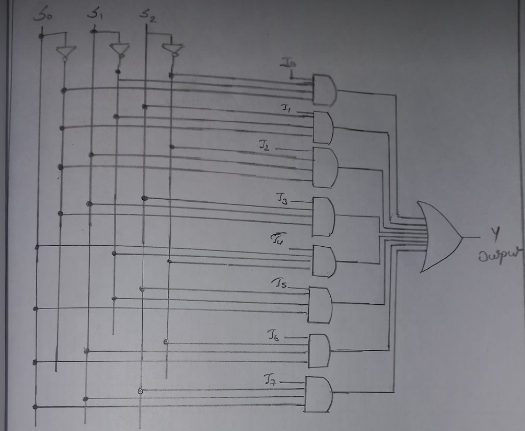 S0 S1 S2
I0
I1
I2
I3
I4
I5
I6
I7
Y
Output